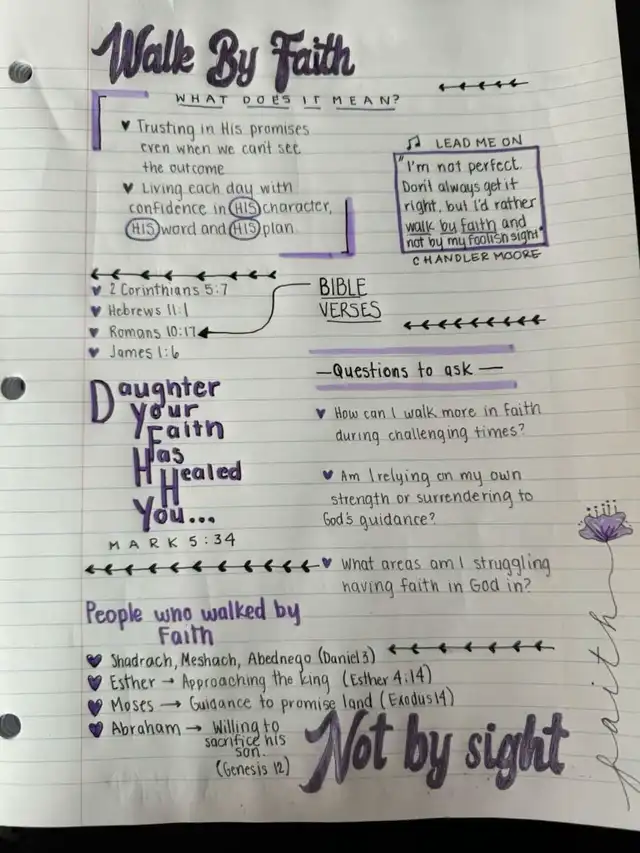 Walk By Faith
WHAT DOES IT MEAN?
♥ Trusting in His promises
even when we can't see
the outcome
♥ Living each day with
confidence in HIS character,
HIS word and HIS plan
♫ LEAD ME ON
"I'm not perfect.
Don't always get it
right, but I'd rather
walk by faith and
not by my foolish sight"
CHANDLER MOORE
♥ 2 Corinthians 5:7
♥ Hebrews 11:1
♥ Romans 10:17
♥ James 1:6
BIBLE
VERSES
Daughter
Your
Faith
Has
Healed
You...
MARK 5:34
—Questions to ask—
♥ How can I walk more in faith
during challenging times?
♥ Am I relying on my own
strength or surrendering to
God's guidance?
♥ What areas am I struggling
having faith in God in?
People who walked by
Faith
♥ Shadrach, Meshach, Abednego (Daniel 3)
♥ Esther → Approaching the king (Esther 4:14)
♥ Moses → Guidance to promise land (Exodus 14)
♥ Abraham → Willing to
sacrifice his
son.
(Genesis 12)
Not by sight
faith